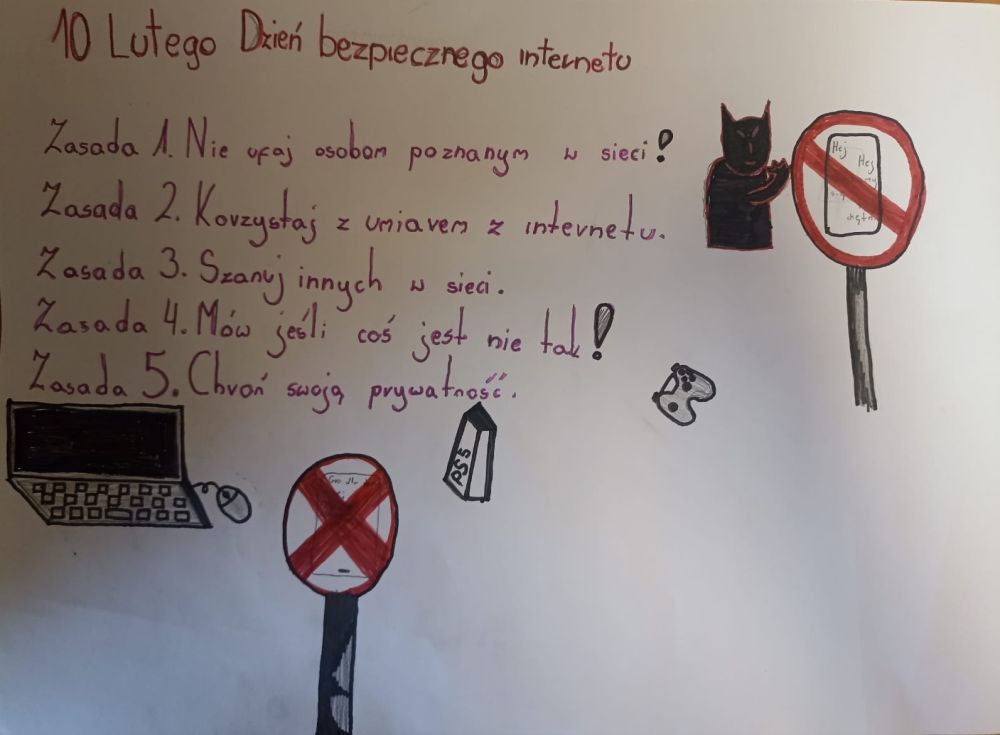 10 Lutego Dzień bezpiecznego internetu
Zasada 1. Nie ufaj osobom poznanym w sieci!
Zasada 2. Korzystaj z umiarem z internetu.
Zasada 3. Szanuj innych w sieci.
Zasada 4. Mów jeśli coś jest nie tak!
Zasada 5. Chroń swoją prywatność.
Hej
Hej
PS5